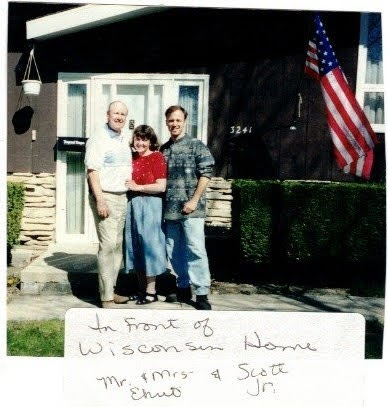 3241
In Front of
Wisconsin Home
Mr. & Mrs. & Scott
Jr.